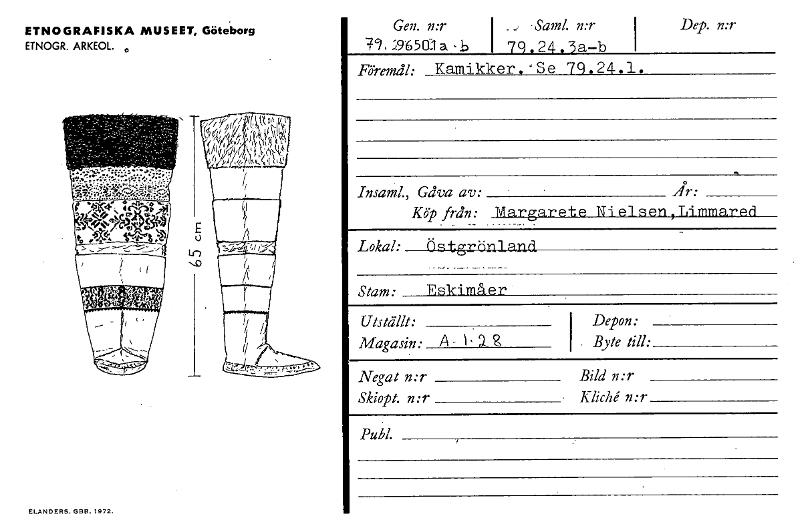 ETNOGRAFISKA MUSEET, Göteborg
ETNOGR. ARKEOL.
65 cm
ELANDERS. GBB. 1972.
Gen. n:r Saml. n:r Dep. n:r
79.24.3a-b
Föremål: Kamikker. Se 79.24.1.
Insaml., Gåva av: År:
Köp från: Margarete Nielsen, Limmared
Lokal: Östgrönland
Stam: Eskimåer
Utställt: Depon:
Magasin: A.1.28 Byte till:
Negat n:r Bild n:r
Skiopt. n:r Kliché n:r
Publ.